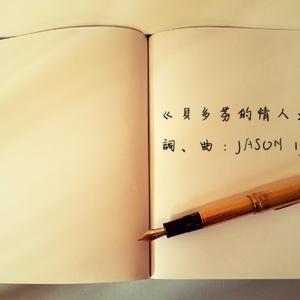 《貝多芬的情人》
詞、曲:JASON